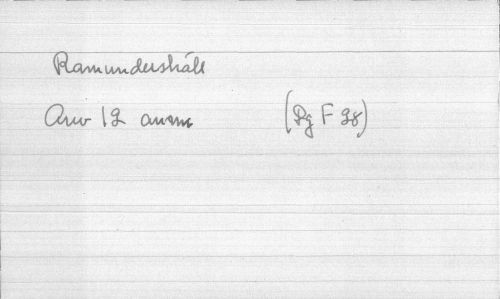 Ramundershäll
Arw 12 anm (Rg F 98)